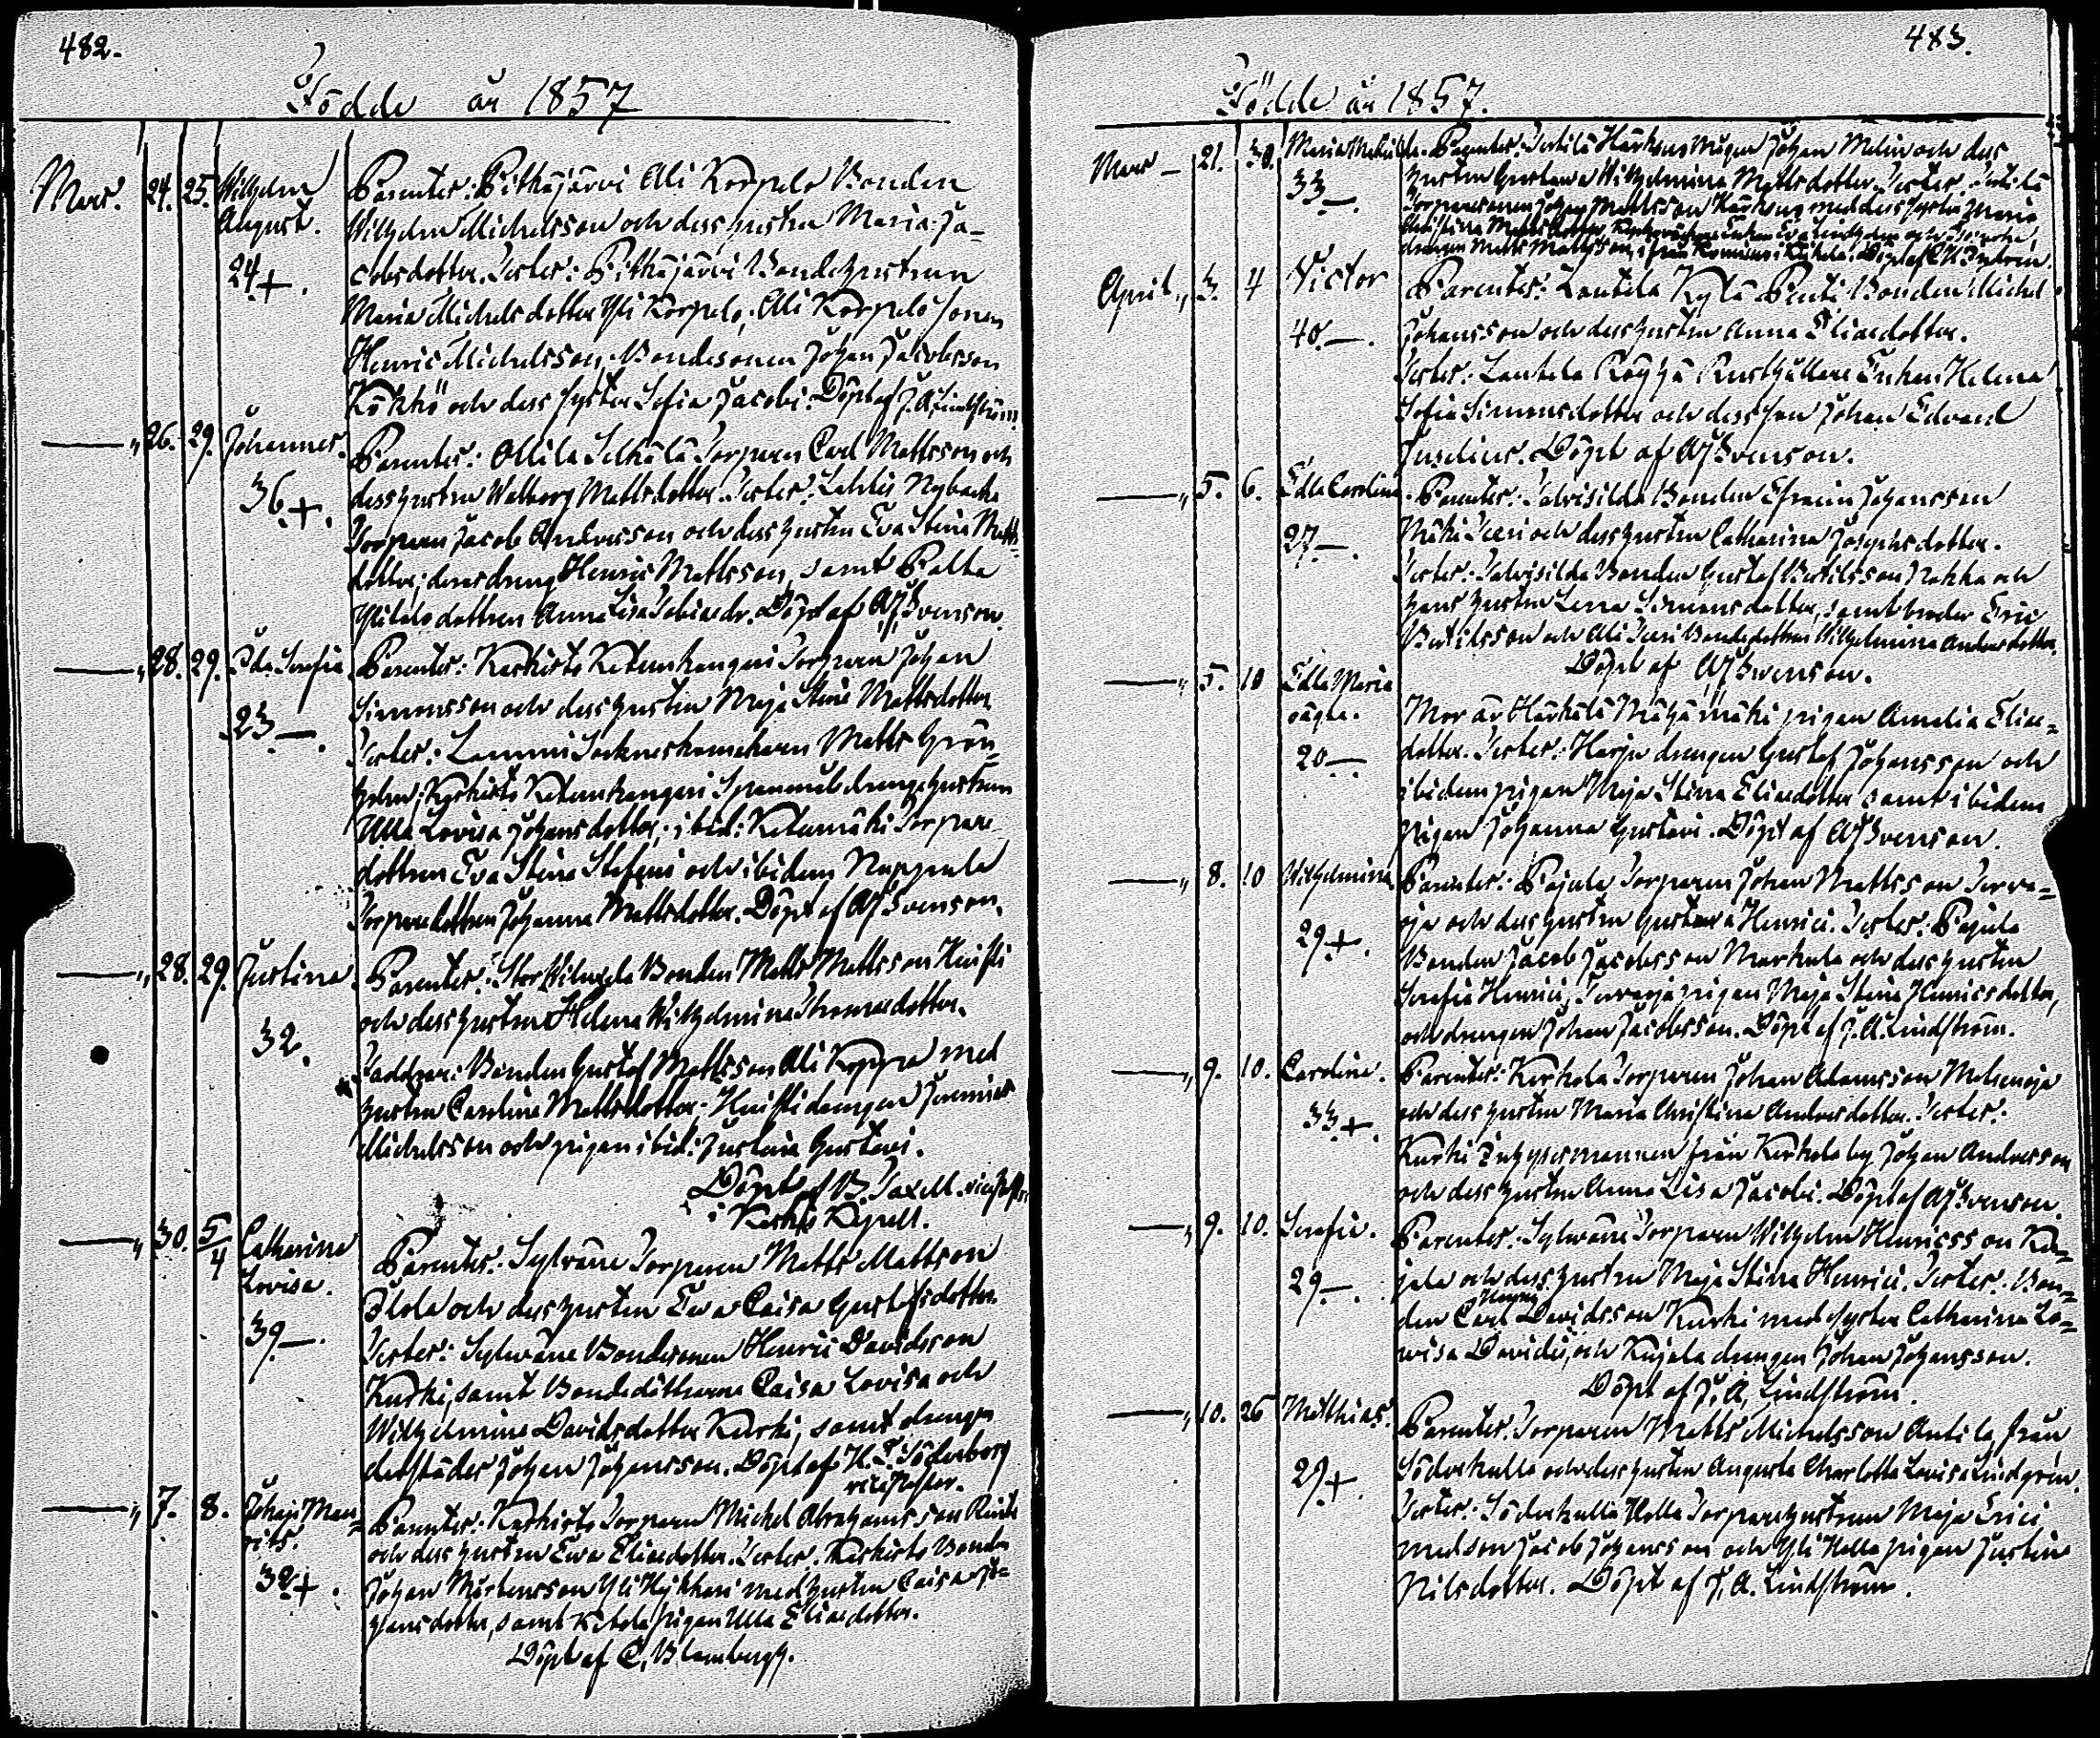 482.
Födde år 1857
Mars. 24. 25. Wilhelm August. 24.+.
Parenter: Pitkäjärvi Ali Korpelo Bonden
Wilhelm Michelsson och dess hustru Maria Ja-
cobsdotter. Tester: Pitkäjärvi Bondehustrun
Maria Michelsdotter Yli Korpelo, Ali Korpelo sonen
Henric Michelsson, Bondesonen Johan Jacobsson
Kökkö och dess syster Sofia Jacobi. Döpt af J. A. Lindström.
— „ 26. 29. Johannes. 36.+.
Parenter: Ollila Torparen Carl Mattsson och
dess hustru Walborg Mattsdotter. Tester: Nybacka
Torparen Jacob Andersson och dess hustru Eva Stina Matts-
dotter; deras dreng Henric Mattsson, samt
dottren Anna Lisa Tobiaedr. Döpt af AJSvenson.
— „ 28. 29. Ida Serafia 23.—.
Parenter: Karkisto Ketunkangas Torparen Johan
Simonsson och dess hustru Maja Stina Mattsdotter
Tester: Lammi Matts Grön-
holm; Karkisto Ketunkangas drengehustrun
Ulla Lovisa Johansdotter, ibid: Ketumäki Torpare
dottren Eva Stina Stefani och ibidem Nuppula
Torparedottren Johanna Mattsdotter. Döpt af AJSvenson.
— „ 28. 29. Justina. 32.
Parenter: Bonden Matts Mattsson Knifti
och dess hustru Helena Wilhelmina Thomasdotter.
Faddrar: Bonden Gustaf Mattsson Ali Koppa med
hustru Carolina Mattsdotter. drengen Jeremias
Michelsson och pigan ibid: Justina Gustavi.
Döpt af B. Taxell.
i Kapell.
— „ 30. 5/4 Catharina Lovisa. 39.—.
Parenter: Sylväne Torparen Matts Mattson
och dess hustru Eva Caisa Gustafsdotter.
Tester: Sylväne Bondesonen Henric Davidsson
Kurki, samt Bondedöttrarna Caisa Lovisa och
Wilhelmina Davidsdotter Kurki, samt drengen
derstädes Johan Johansson. Döpt af H. L. Söderborg
vice Pastor.
— „ 7. 8. Johan Mau- rits. 32+.
Parenter: Karkisto Torparen Michel Abrahamsson
och dess hustru Eva Eliaedotter. Tester: Karkisto Bonden
Johan Mårtensson Yli med hustru Caisa Jo-
hansdotter, samt pigan Ulla Eliaedotter.
Döpt af C. Blombergh.
483.
Födde år 1857.
Mars — 21. 30. Maria Matilda. 33.—.
Parenter: Johan Melin och dess
hustru Gustava Wilhelmina Mattsdotter. Tester:
Johan Mattsson med dess syster Maria
Christina Mattsdotter,
drengen Matts Mattsson, ifrån Döpt af
April „ 3. 4 Victor 40.—.
Parenter: Lautela Kylä Penti Bonden Michel
Johansson och dess hustru Anna Eliaedotter.
Tester: Lautela Röyhä Rusthållare Enkan Helena
Sofia Simonsdotter och dess son Johan Edvard
Juselius. Döpt af AJSvenson.
— „ 5. 6. Edla Carolina. 27.—.
Parenter: Talvisilda Bonden Efraim Johansson
och dess hustru Catharina Josephsdotter.
Tester: Talvisilda Bonden Gustaf Bertilsson Nokka och
hans hustru Lena Simonsdotter, samt broder Eric
Bertilsson och Ali Bondedottren Wilhelmina Andersdotter.
Döpt af AJSwenson.
— „ 5. 10 Edla Maria oägta. 20—
Mor är pigan Amalia Eliae-
dotter. Tester: Harju drengen Gustaf Johansson och
ibidem pigan Maja Stina Eliaedotter samt ibidem
pigan Johanna Gustavi. Döpt af AJSvenson.
— „ 8. 10 Wilhelmina 29.+.
Parenter: Pajula Torparen Johan Mattsson Terva-
oja och dess hustru Gustava Henrici. Tester: Pajula
Bonden Jacob Jacobsson Markula och dess hustru
Serafia Henrici, Tervaoja pigan Maja Stina Henricsdotter,
och drengen Johan Jacobsson. Döpt af J. A. Lindström.
— „ 9. 10. Carolina. 33.+.
Parenter: Kerkola Torparen Johan Adamsson
och dess hustru Maria Christina Andersdotter. Tester:
Kurki Inhysesmannen från Kerkola by Johan Andersson
och dess hustru Anna Lisa Jacobi. Döpt af AJSvenson.
— „ 9. 10. Serafia. 29.—.
Parenter: Sylväne Torparen Wilhelm Henricsson Ku-
jala och dess hustru Maja Stina Henrici. Tester: Bon-
den Carl Henric Davidsson Kurki med syster Catharina Lo-
wisa Davidis, och Kujala drengen Johan Johansson.
Döpt af J. A. Lindström.
— „ 10. 26 Mathias. 29.+.
Parenter: Torparen Matts Michelsson Antila från
Söderkulla och dess hustru Augusta Charlotta Lovisa Lindgrén.
Tester: Söderkulla Hella Torparehustrun Maja Erici
med son Jacob Johansson och Yli Hella pigan Justina
Nilsdotter. Döpt af J. A. Lindström.